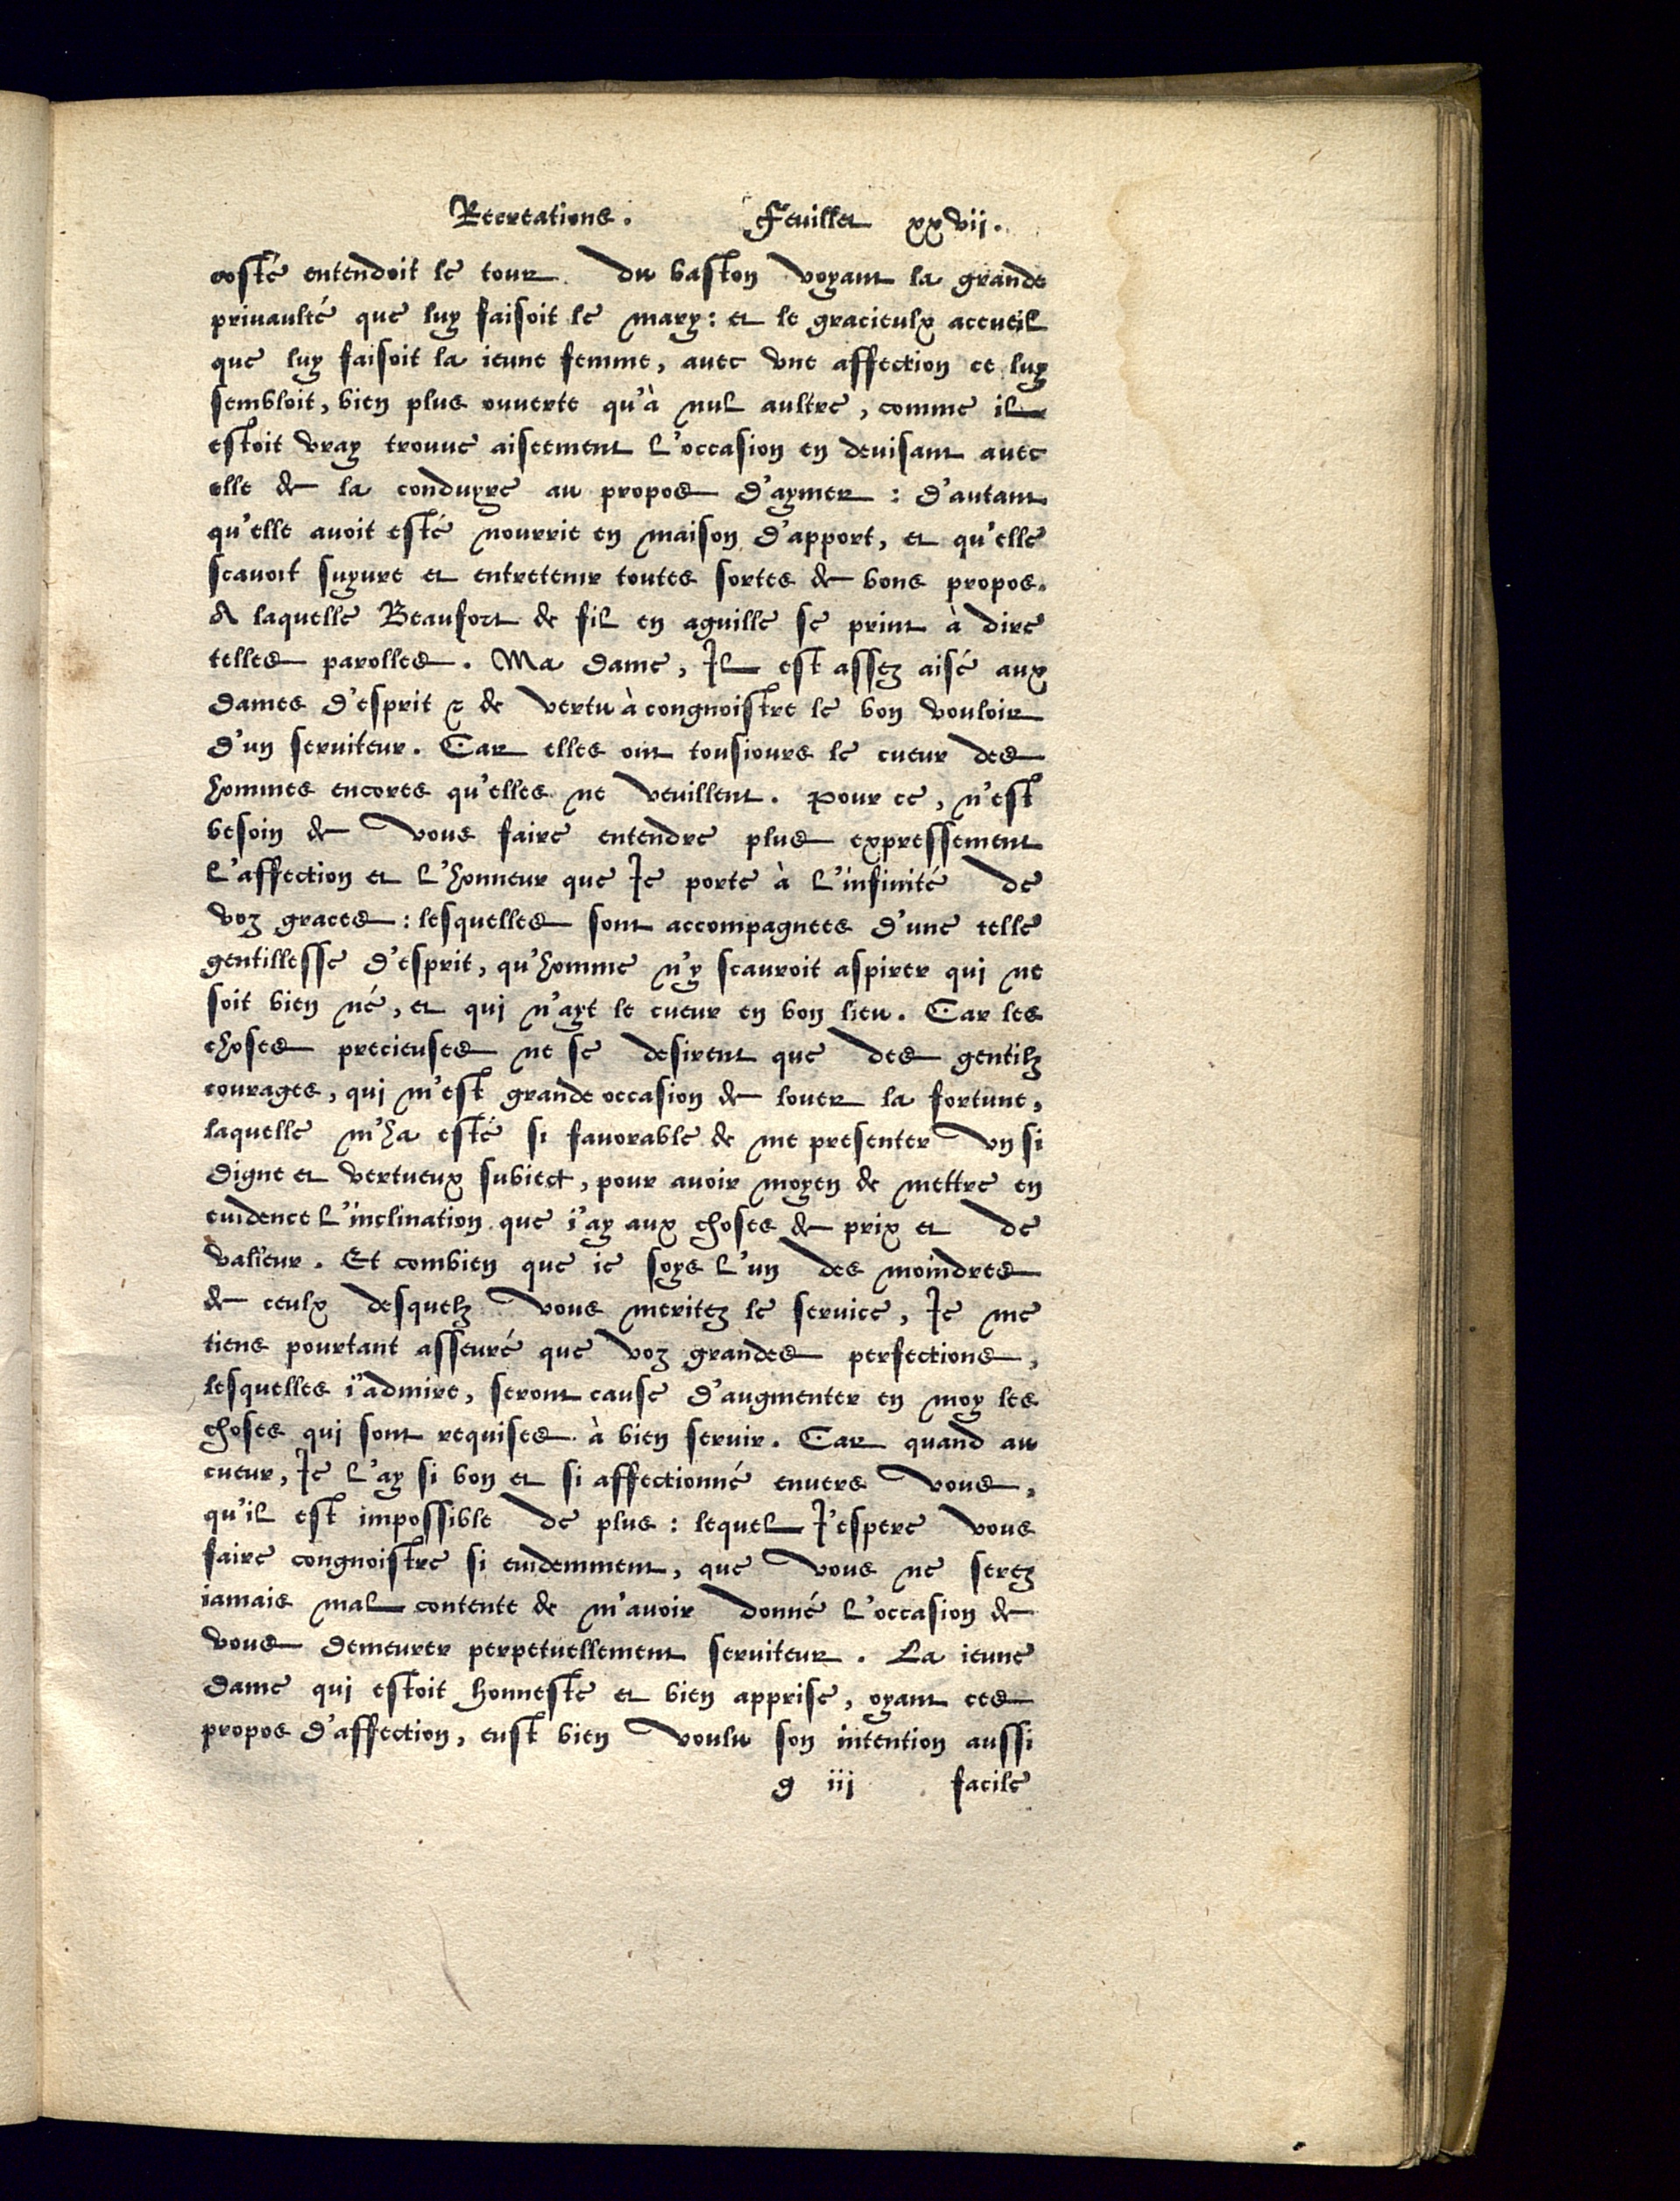 Recreations. Feuillet xxvij.
costé entendoit le tour du baston voyant la grande
priuaulté que luy faisoit le mary: et le gracieulx accueil
que luy faisoit la ieune femme, auec vne affection ce luy
sembloit, bien plus ouuerte qu'à nul aultre, comme il
estoit vray trouue aiseement l'occasion en deuisant auec
elle de la conduyre au propos d'aymer : d'autant
qu'elle auoit esté nourrie en maison d'apport, et qu'elle
scauoit suyure et entretenir toutes sortes de bons propos.
A laquelle Beaufort de fil en aguille se print à dire
telles parolles. Ma dame, Il est assez aisé aux
dames d'esprit & de vertu à congnoistre le bon vouloir
d'un seruiteur. Car elles ont tousiours le cueur des
hommes encores qu'elles ne veuillent. Pour ce, n'est
besoin de vous faire entendre plus expressement
l'affection et l'honneur que Ie porte à l'infinité de
voz graces : lesquelles sont accompagnees d'une telle
gentillesse d'esprit, qu'homme n'y scauroit aspirer qui ne
soit bien né, et qui n'ayt le cueur en bon lieu. Car les
choses precieuses ne se desirent que des gentilz
courages, qui m'est grande occasion de louer la fortune,
laquelle m'ha esté si fauorable de me presenter vn si
digne et vertueux subiect, pour auoir moyen de mettre en
euidence l'inclination que i'ay aux choses de prix et de
valleur. Et combien que ie soys l'un des moindres
de ceulx desquelz vous meritez le seruice, Ie me
tiens pourtant asseuré que voz grandes perfections,
lesquelles i'admire, seront cause d'augmenter en moy les
choses qui sont requises à bien seruir. Car quand au
cueur, Ie l'ay si bon et si affectionné enuers vous,
qu'il est impossible de plus : lequel I'espere vous
faire congnoistre si euidemment, que vous ne serez
iamais mal contente de m'auoir donné l'occasion de
vous demeurer perpetuellement seruiteur. La ieune
dame qui estoit honneste et bien apprise, oyant ces
propos d'affection, eust bien voulu son intention aussi
g iij facile